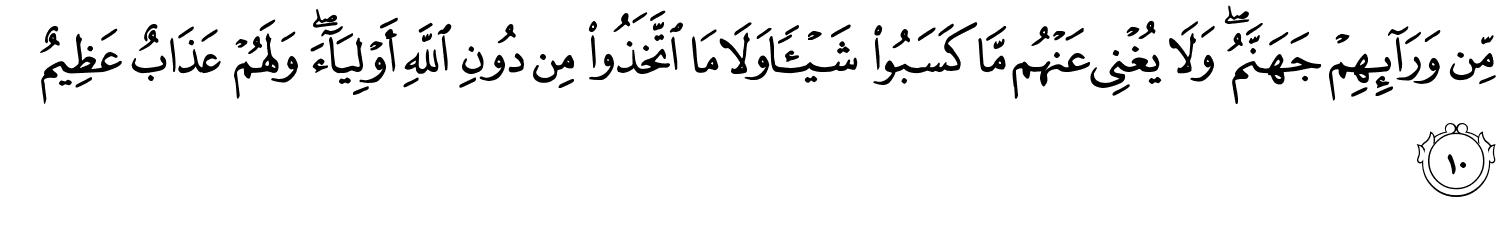 مِّن وَرَآئِهِمْ جَهَنَّمُ ۖ وَلَا يُغْنِى عَنْهُم مَّا كَسَبُوا۟ شَيْـًٔا وَلَا مَا ٱتَّخَذُوا۟ مِن دُونِ ٱللَّهِ أَوْلِيَآءَ ۖ وَلَهُمْ عَذَابٌ عَظِيمٌ
١٠